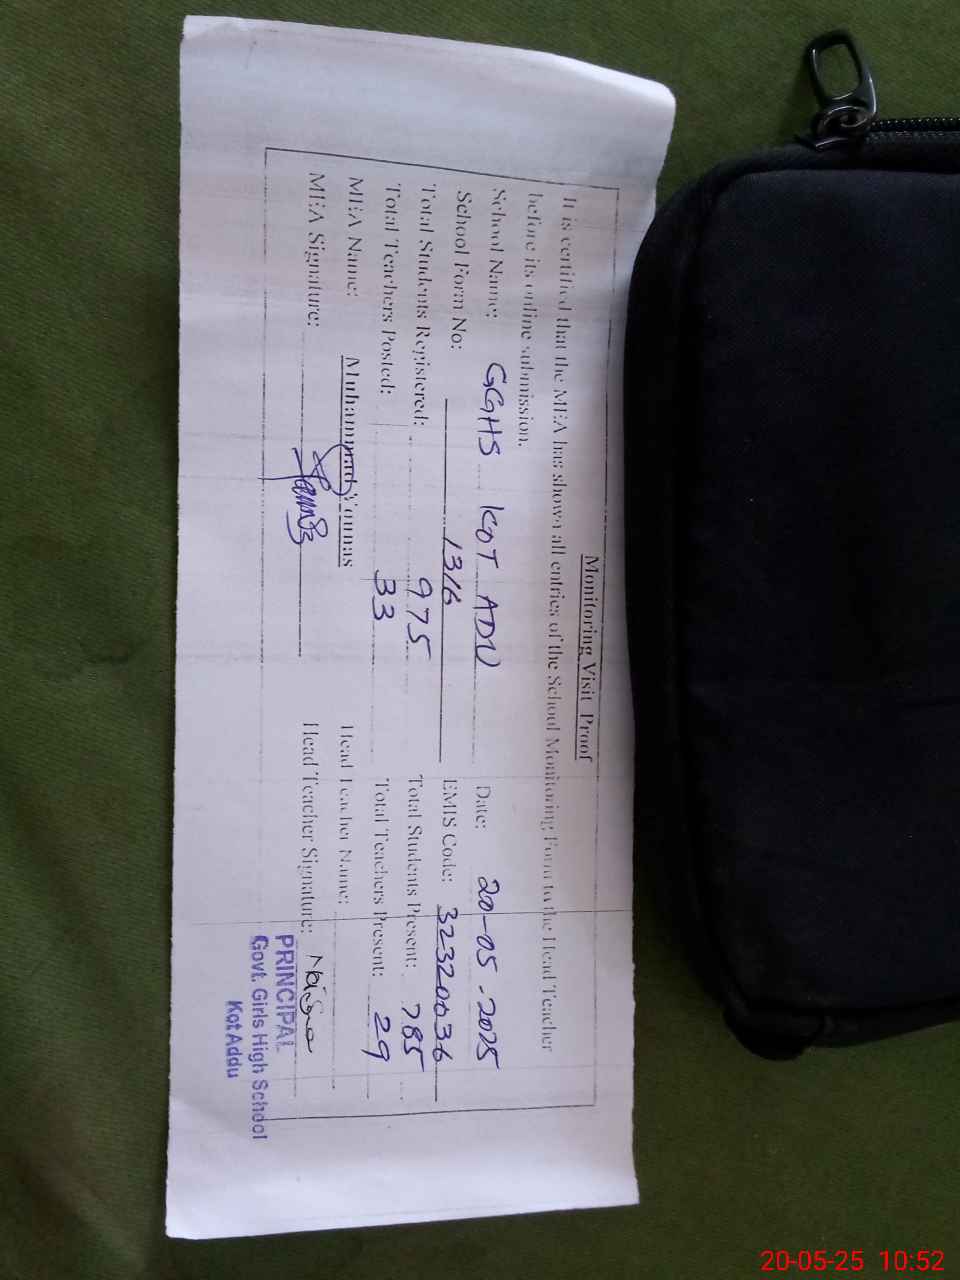 Monitoring Visit Proof
It is certified that the MEA has shown all entries of the School Monitoring Form to the Head Teacher
before its online submission.
School Name: GGHS KOT ADU Date: 20-05-2025
School Form No: 1316 EMIS Code: 32320036
Total Students Registered: 975 Total Students Present: 785
Total Teachers Posted: 33 Total Teachers Present: 29
MEA Name: Muhammad Younas Head Teacher Name:
MEA Signature: Head Teacher Signature:
PRINCIPAL
Govt. Girls High School
Kot Addu
20-05-25 10:52